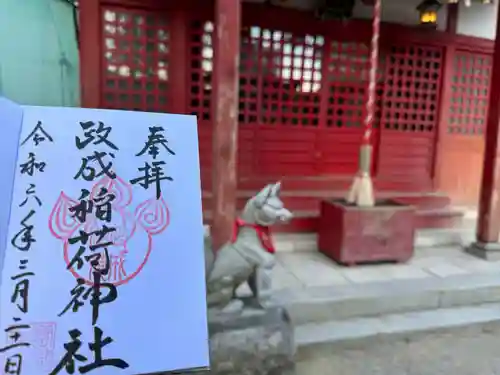 奉拝
政成稲荷神社
令和六年三月二十一日